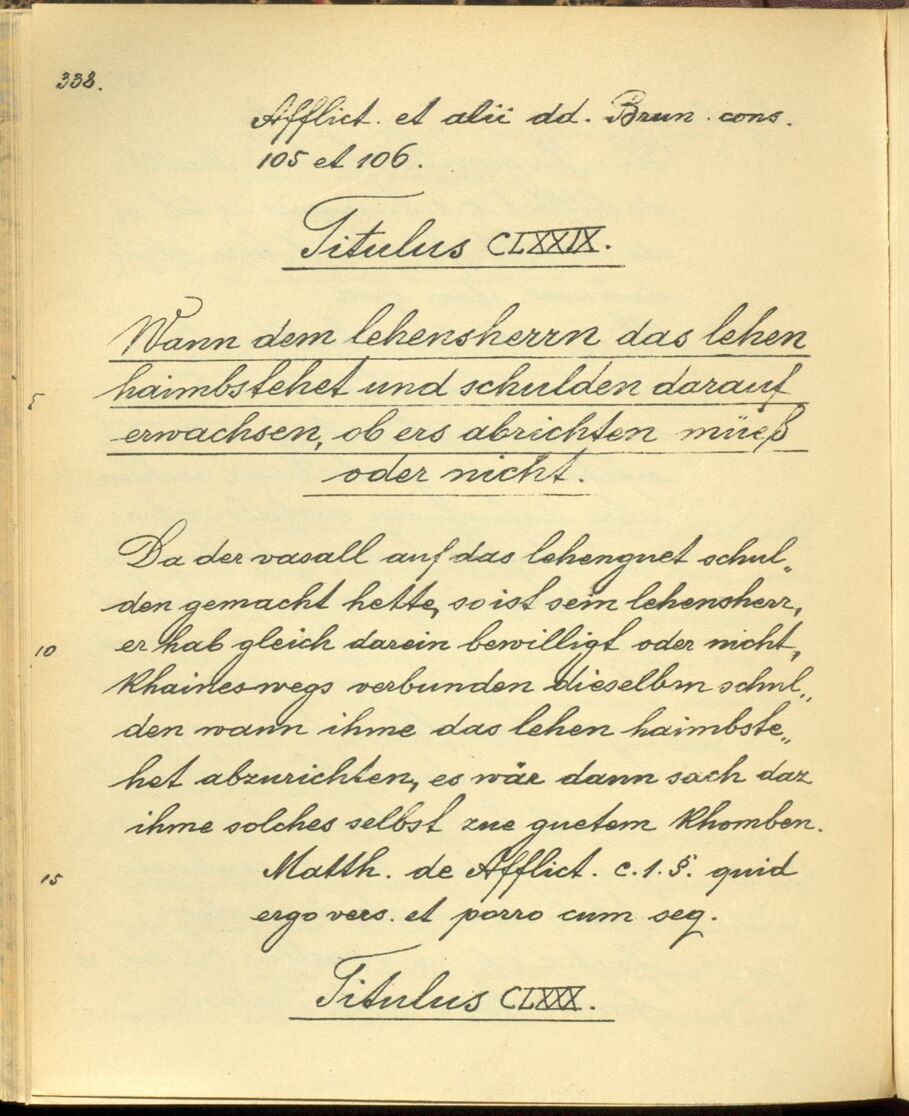 338.
Afflict. et alii dd. Brun. cons.
105 et 106.
Titulus CLXXIX.
Wann dem lehensherrn das lehen
5 haimbstehet und schulden darauf
erwachsen, ob ers abrichten müeß
oder nicht.
Da der vasall auf das lehenguet schul„
den gemacht hette, so ist sein lehensherr,
10 er hab gleich darein bewilligt oder nicht,
khaineswegs verbunden dieselbm schul„
den wann ihme das lehen haimbste„
het abzurichten, es wär dann sach daz
ihme solches selbst zue guetem khomben.
15 Matth. de Afflict. c. 1. §. quid
ergo vers. et porro cum seq.
Titulus CLXXX.